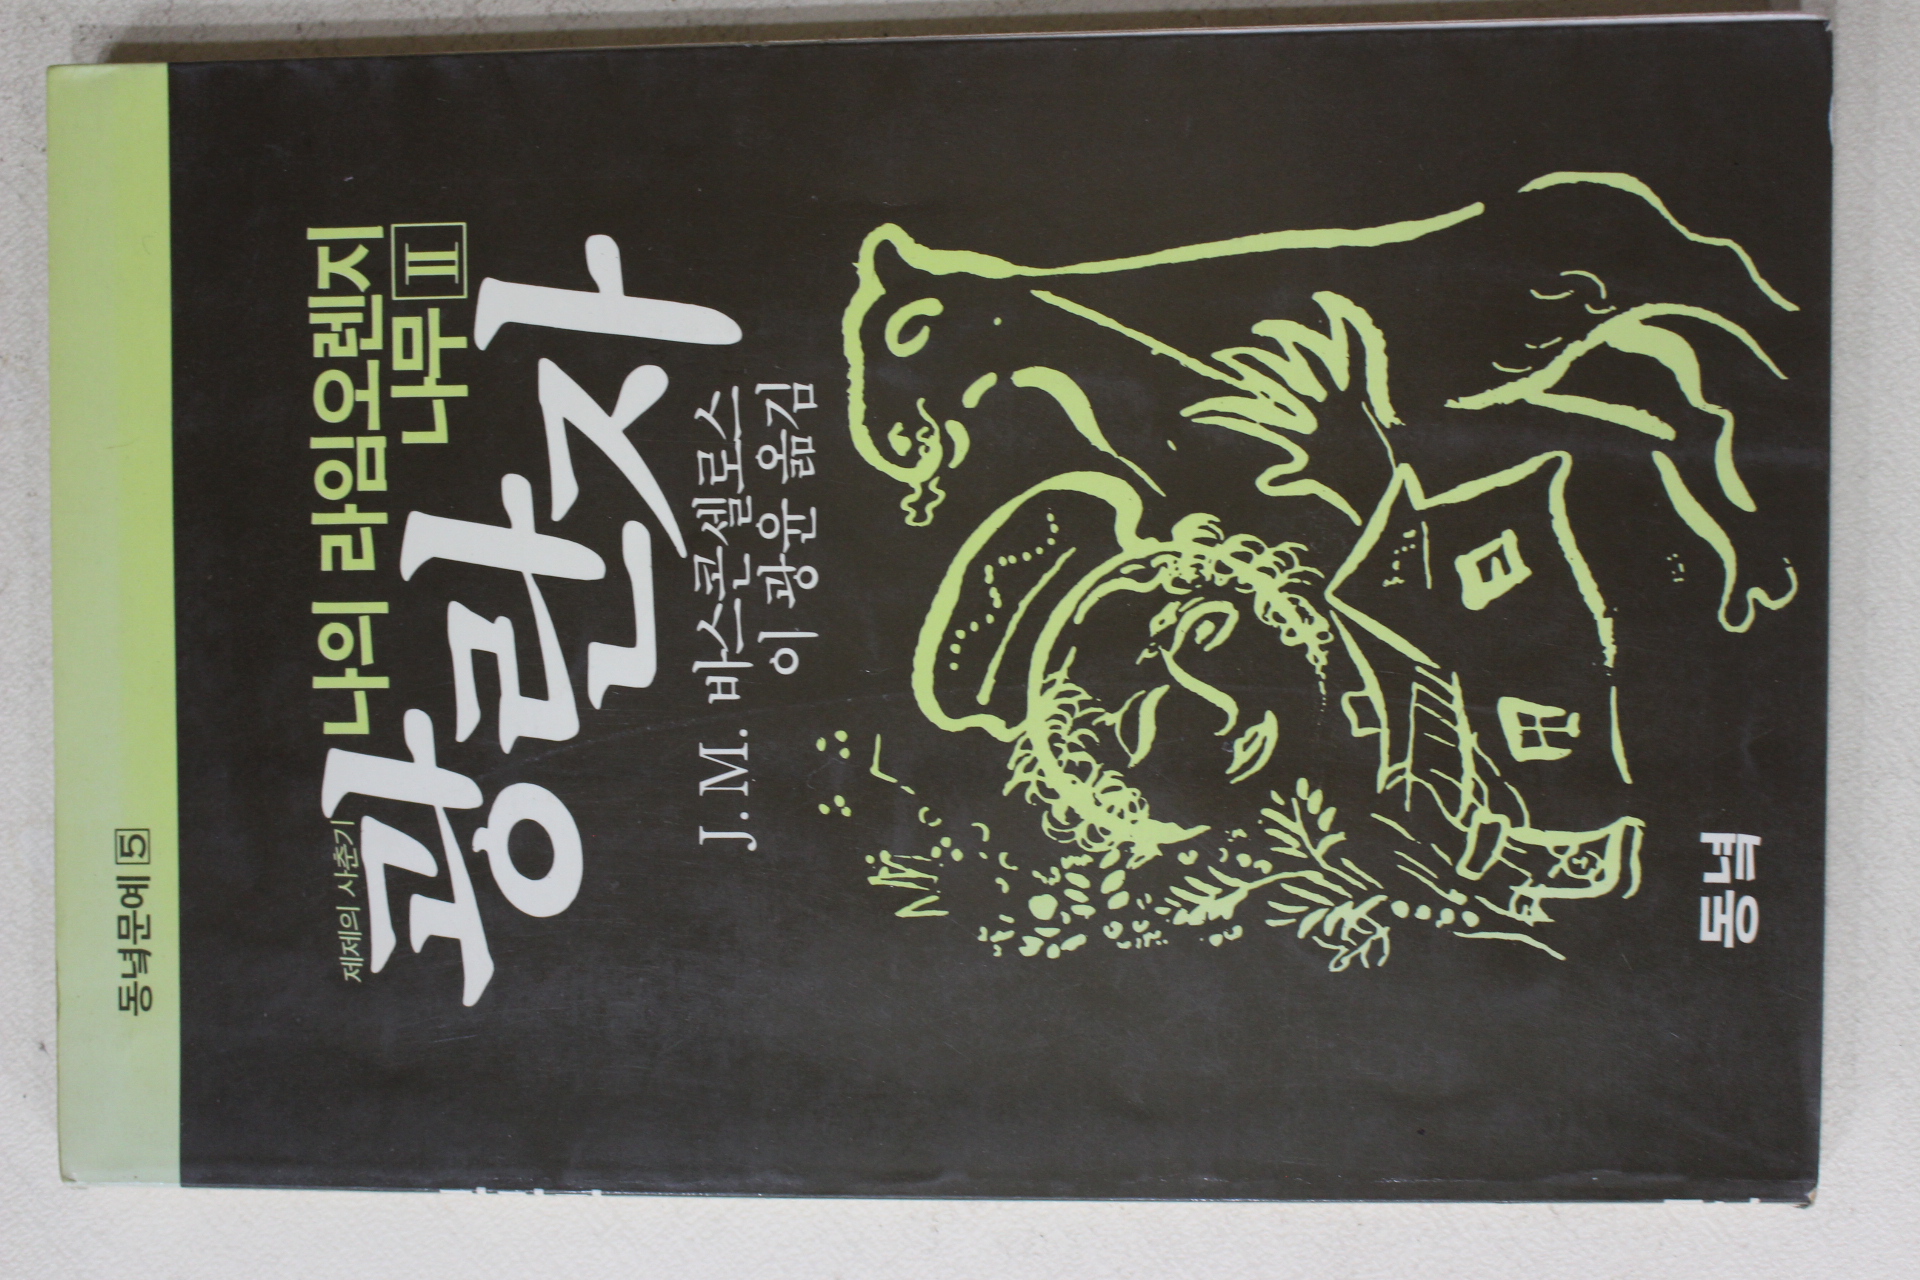 동녘문예 5
나의 라임오렌지
나무 II
제제의 사춘기
광란자
J. M. 바스콘셀로스
이광윤 옮김
동녘